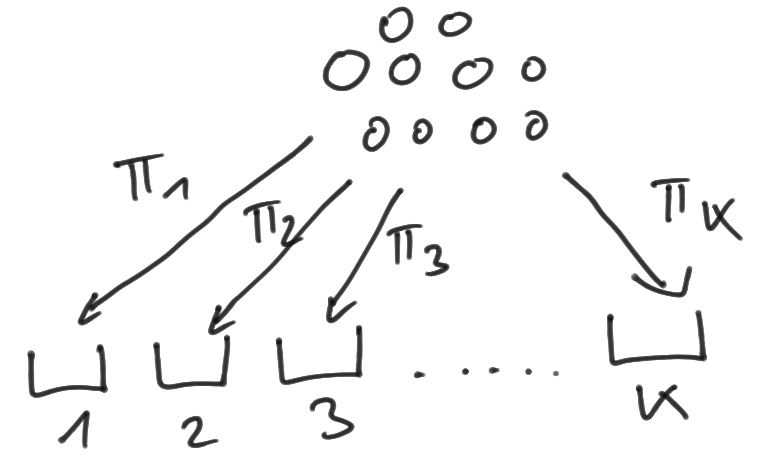 π1 π2 π3 πK
1 2 3 ..... K